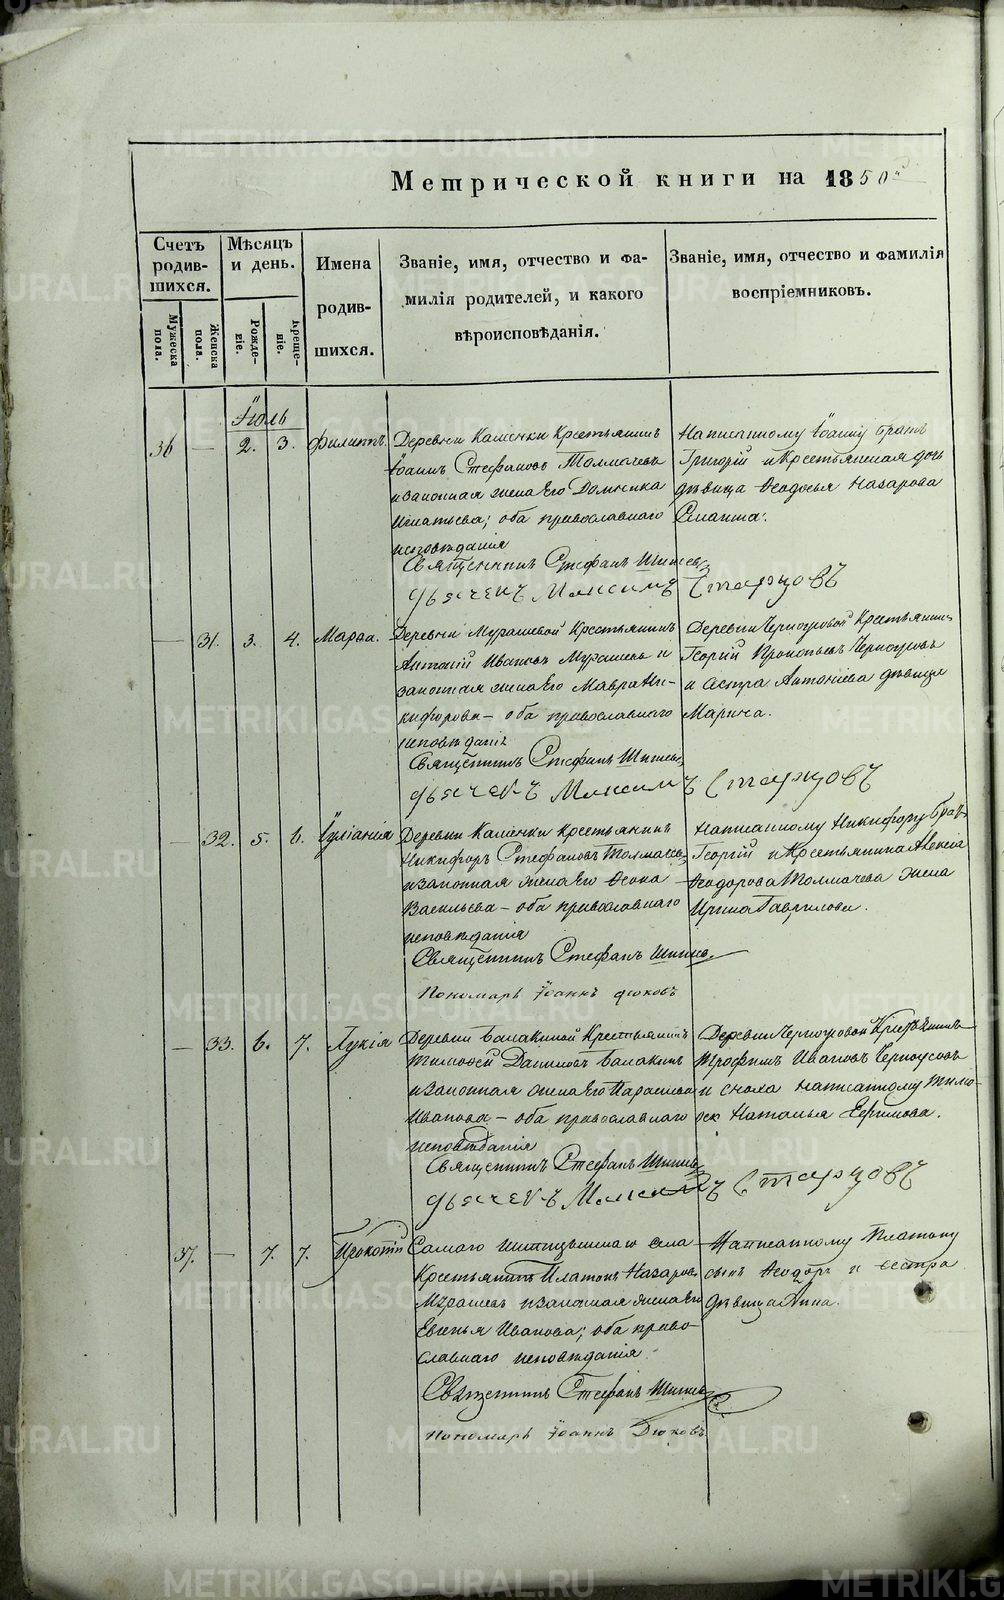 Метрической книги на 1850й
Счетъ родив- шихся.
Мѣсяцъ и день.
Имена родив- шихся.
Званіе, имя, отчество и фа-
милія родителей, и какого
вѣроисповѣданія.
Званіе, имя, отчество и фамилія
воспріемниковъ.
Мужеска пола.
Женска пола.
Рожде- ніе.
Креще- ніе.
Іюль
36 — 2. 3. Филиппъ.
Деревни Каменки Крестьянинъ
Іоаннъ Стефановъ Толмачевъ
и законная жена Его Домника
Игнатьева; оба православнаго
исповѣданія
Написанному Іоанну братъ
Григорій и Крестьянская дочь
дѣвица Ѳеодосья Назарова
Священникъ Стефанъ
дьячекъ Максимъ Старцовъ
— 31. 3. 4. Марѳа.
Деревни Мурашевой Крестьянинъ
Антоній Ивановъ Мурашевъ и
законная жена Его Мавра Ни-
кифорова — оба православнаго
исповѣданія
Деревни Черноусовой Крестьянинъ
Георгій Прокопьевъ Черноусовъ
и сестра Антоніева дѣвица
Марина.
Священникъ Стефанъ
дьячекъ Максимъ Старцовъ
— 32. 5. 6. Іуліанія
Деревни Каменки Крестьянинъ
Никифоръ Стефановъ Толмачевъ
и законная жена Его Ѳеокла
Васильева — оба православнаго
исповѣданія
Написанному Никифору братъ
Георгій и Крестьянина Алексія
Ѳеодорова Толмачева жена
Ирина Гаврилова.
Священникъ Стефанъ
Пономарь Іоаннъ Дюковъ
— 33. 6. 7. Лукія
Деревни Балакиной Крестьянинъ
Тимоѳей Даниловъ Балакинъ
и законная жена Его Параскева
Иванова — оба православнаго
исповѣданія
Деревни Черноусовой Крестьянинъ
Трофимъ Ивановъ Черноусовъ
и сноха написанному Тимо-
ѳею Наталья Ефимова.
Священникъ Стефанъ
дьячекъ Максимъ Старцовъ
37. — 7. 7. Прокопій
Самаго села
Крестьянинъ Платонъ Назаровъ
Мурашевъ и законная жена Его
Евгенья Иванова; оба право-
славнаго исповѣданія
Написанному Платону
сынъ Ѳеодоръ и сестра
дѣвица Анна.
Священникъ Стефанъ
Пономарь Іоаннъ Дюковъ
METRIKI.GASO-URAL.RU